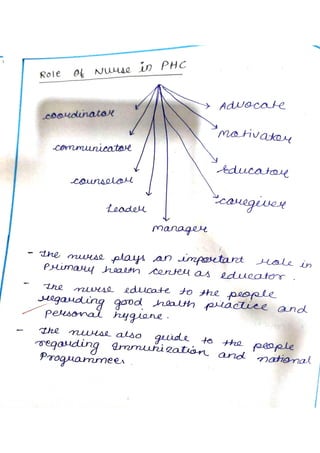 Role of Nurse in PHC
coordinator
Advocate
communicator
Motivator
counselor
Educator
Leader
caregiver
Manager
- The nurse plays an important role in
Primary health center as educator.
- The nurse educate to the people
regarding good health practice and
personal hygiene.
- The nurse also guide to the people
regarding Immunization and national
Programmee.